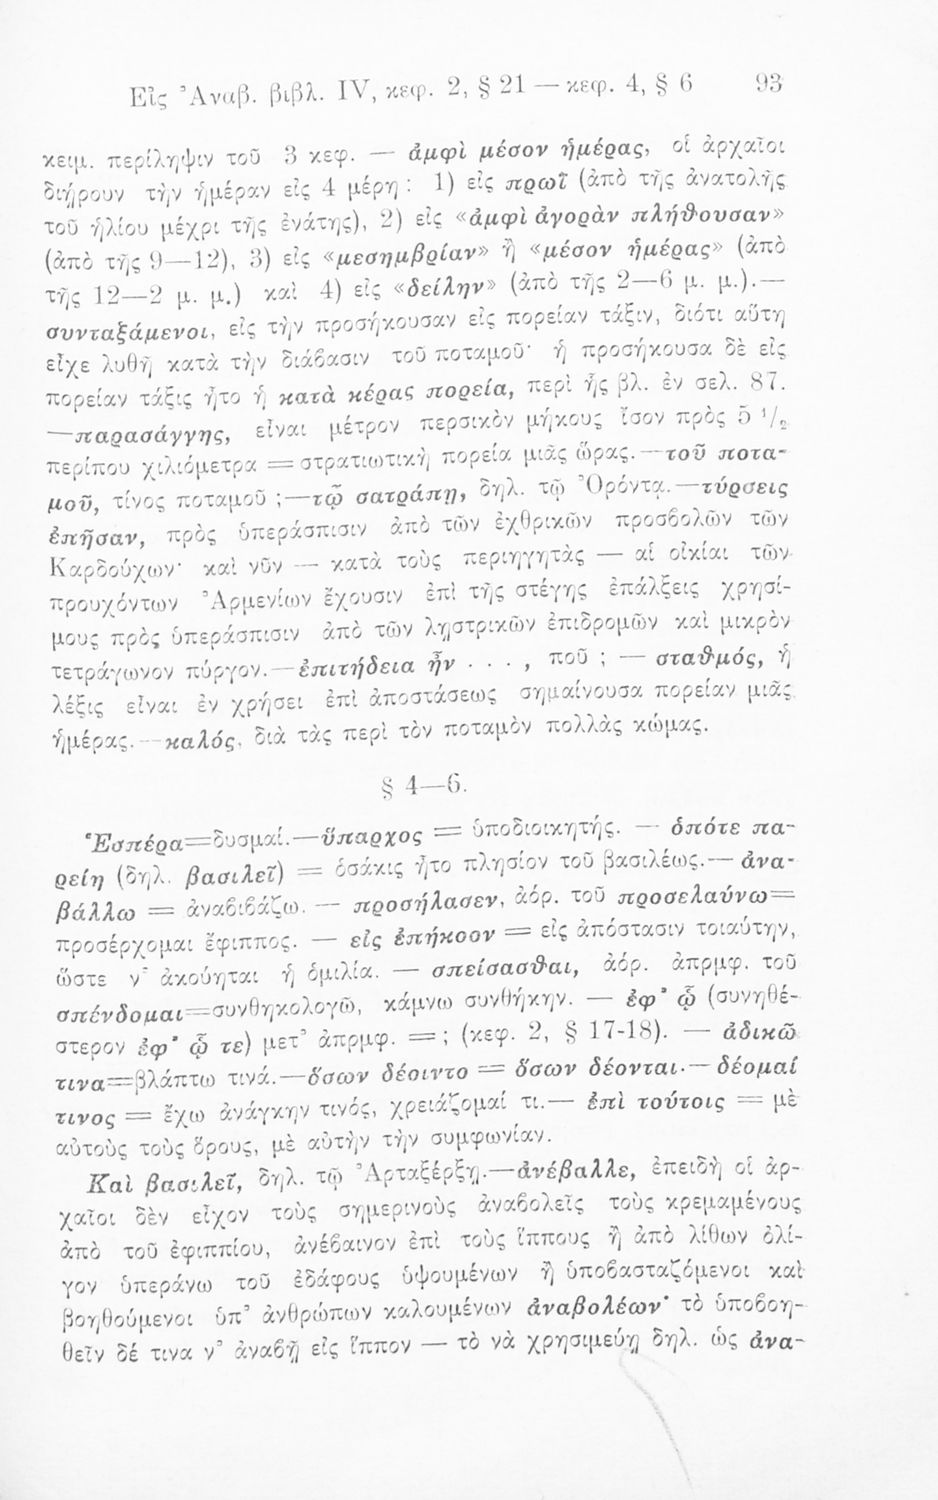 Εἰς Ἀναβ. βιβλ. IV, κεφ. 2, § 21 — κεφ. 4, § 6 93
κειμ. περίληψιν τοῦ 3 κεφ. — ἀμφὶ μέσον ἡμέρας, οἱ ἀρχαῖοι
διῄρουν τὴν ἡμέραν εἰς 4 μέρη : 1) εἰς πρωῒ (ἀπὸ τῆς ἀνατολῆς
τοῦ ἡλίου μέχρι τῆς ἐνάτης), 2) εἰς «ἀμφὶ ἀγορὰν πλήθουσαν»
(ἀπὸ τῆς 9—12), 3) εἰς «μεσημβρίαν» ἢ «μέσον ἡμέρας» (ἀπὸ
τῆς 12—2 μ. μ.) καὶ 4) εἰς «δείλην» (ἀπὸ τῆς 2—6 μ. μ.).—
συνταξάμενοι, εἰς τὴν προσήκουσαν εἰς πορείαν τάξιν, διότι αὕτη
εἶχε λυθῆ κατὰ τὴν διάβασιν τοῦ ποταμοῦ· ἡ προσήκουσα δὲ εἰς
πορείαν τάξις ἦτο ἡ κατὰ κέρας πορεία, περὶ ἧς βλ. ἐν σελ. 87.
—παρασάγγης, εἶναι μέτρον περσικὸν μήκους ἴσον πρὸς 5 ¹/₂
περίπου χιλιόμετρα = στρατιωτικὴ πορεία μιᾶς ὥρας.—τοῦ ποτα-
μοῦ, τίνος ποταμοῦ ;—τῷ σατράπῃ, δηλ. τῷ Ὀρόντᾳ.—τύρσεις
ἐπῆσαν, πρὸς ὑπεράσπισιν ἀπὸ τῶν ἐχθρικῶν προσβολῶν τῶν
Καρδούχων· καὶ νῦν — κατὰ τοὺς περιηγητὰς — αἱ οἰκίαι τῶν
προυχόντων Ἀρμενίων ἔχουσιν ἐπὶ τῆς στέγης ἐπάλξεις χρησί-
μους πρὸς ὑπεράσπισιν ἀπὸ τῶν λῃστρικῶν ἐπιδρομῶν καὶ μικρὸν
τετράγωνον πύργον.—ἐπιτήδεια ἦν . . . , ποῦ ; — σταθμός, ἡ
λέξις εἶναι ἐν χρήσει ἐπὶ ἀποστάσεως σημαίνουσα πορείαν μιᾶς
ἡμέρας.—καλός, διὰ τὰς περὶ τὸν ποταμὸν πολλὰς κώμας.
§ 4—6.
Ἑσπέρα=δυσμαί.—ὕπαρχος = ὑποδιοικητής. — ὁπότε πα-
ρείη (δηλ. βασιλεῖ) = ὁσάκις ἦτο πλησίον τοῦ βασιλέως.— ἀνα-
βάλλω = ἀναβιβάζω. — προσήλασεν, ἀόρ. τοῦ προσελαύνω=
προσέρχομαι ἔφιππος. — εἰς ἐπήκοον = εἰς ἀπόστασιν τοιαύτην,
ὥστε ν᾽ ἀκούηται ἡ ὁμιλία. — σπείσασθαι, ἀόρ. ἀπρμφ. τοῦ
σπένδομαι=συνθηκολογῶ, κάμνω συνθήκην. — ἐφ᾽ ᾧ (συνηθέ-
στερον ἐφ᾽ ᾧ τε) μετ᾽ ἀπρμφ. = ; (κεφ. 2, § 17-18). — ἀδικῶ
τινα=βλάπτω τινά.—ὅσων δέοιντο = ὅσων δέονται.—δέομαί
τινος = ἔχω ἀνάγκην τινός, χρειάζομαί τι.— ἐπὶ τούτοις = μὲ
αὐτοὺς τοὺς ὅρους, μὲ αὐτὴν τὴν συμφωνίαν.
Καὶ βασιλεῖ, δηλ. τῷ Ἀρταξέρξῃ.—ἀνέβαλλε, ἐπειδὴ οἱ ἀρ-
χαῖοι δὲν εἶχον τοὺς σημερινοὺς ἀναβολεῖς τοὺς κρεμαμένους
ἀπὸ τοῦ ἐφιππίου, ἀνέβαινον ἐπὶ τοὺς ἵππους ἢ ἀπὸ λίθων ὀλί-
γον ὑπεράνω τοῦ ἐδάφους ὑψουμένων ἢ ὑποβασταζόμενοι καὶ
βοηθούμενοι ὑπ᾽ ἀνθρώπων καλουμένων ἀναβολέων· τὸ ὑποβοη-
θεῖν δέ τινα ν᾽ ἀναβῇ εἰς ἵππον — τὸ νὰ χρησιμεύῃ δηλ. ὡς ἀνα-